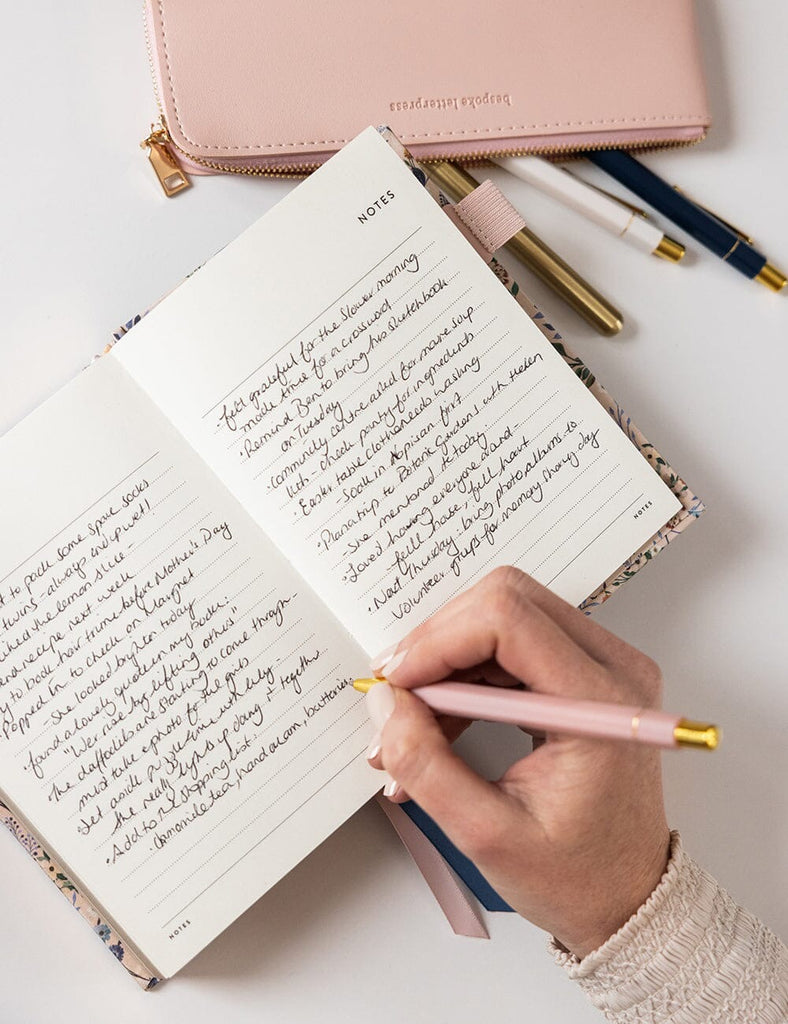 bespoke letterpress
NOTES
t to pack some spare socks
twins - always end up wet!
the lemon slice -
recipe next week
to book hair trim before Mother's Day
Popped in to check on Margret
- she looked brighter today
found a lovely quote in my book:
"We rise by lifting others"
The daffodils are starting to come through -
must take a photo for the girls
Set aside puzzle time with Lily -
She really lights up doing it together
• Add to my shopping list:
• chamomile tea, hand cream, batteries
NOTES
• felt grateful for the slower morning
made time for a crossword
• Remind Ben to bring his sketchbook
on Tuesday
• Community centre asked for more soup
- check pantry for ingredients
• Easter table clothes needs washing
- Soak in Napisan first
• Plan a trip to Botanic Gardens with Helen
- She mentioned it today
• Loved having everyone round -
full house, full heart
• Next Thursday - bring photo albums to
volunteer groups for memory sharing day
NOTES